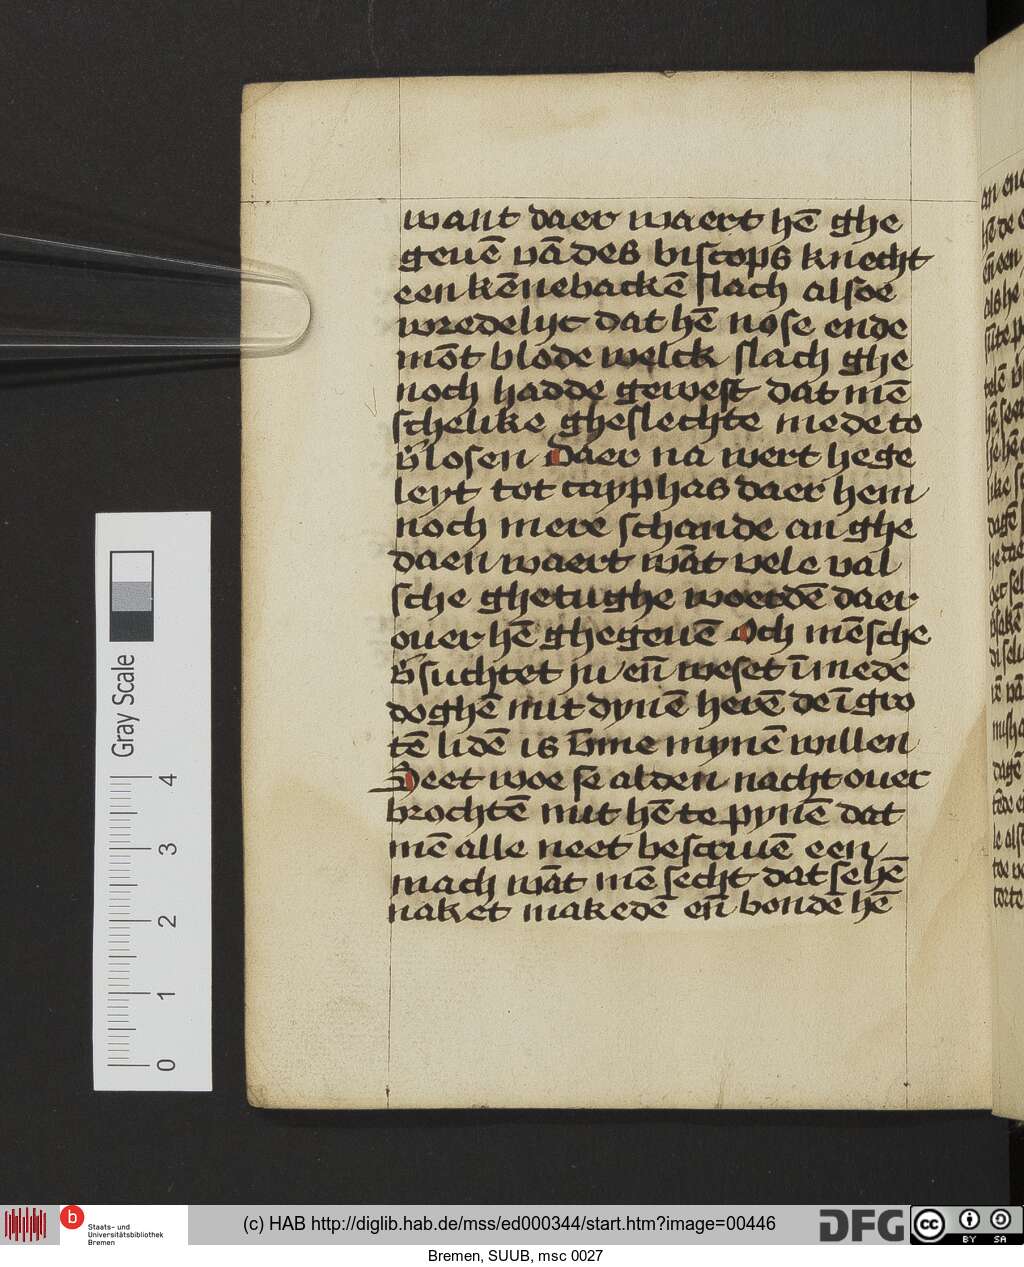 want daer waert hē ghe
geuē vā des biscops knecht
een kēnebackē slach alsoe
wredelijt dat hē nose ende
mōt blode welck slach ghe
noch hadde gewest dat mē
schelike gheslechte mede to
v̄losen Daer na wert he ge
leyt tot cayphas daer hem
noch mere schande an ghe
daen waert wāt vele val
sche ghetughe woerdē daer
ouer hē ghegeuē Och mēsche
v̄suchtet ju en̄ weset ī mede
doghē mit dynē herē de ī gro
tē lidē is v̄me mynē willen
Seet woe se al den nacht ouer
brochtē mit hē te pynē dat
mē alle neet bescriuē een
mach wāt mē secht dat se hē
naket makedē en̄ bondē hē
Gray Scale
0 1 2 3 4
b
Staats- und
Universitätsbibliothek
Bremen
(c) HAB http://diglib.hab.de/mss/ed000344/start.htm?image=00446
DFG
cc BY SA
Bremen, SUUB, msc 0027